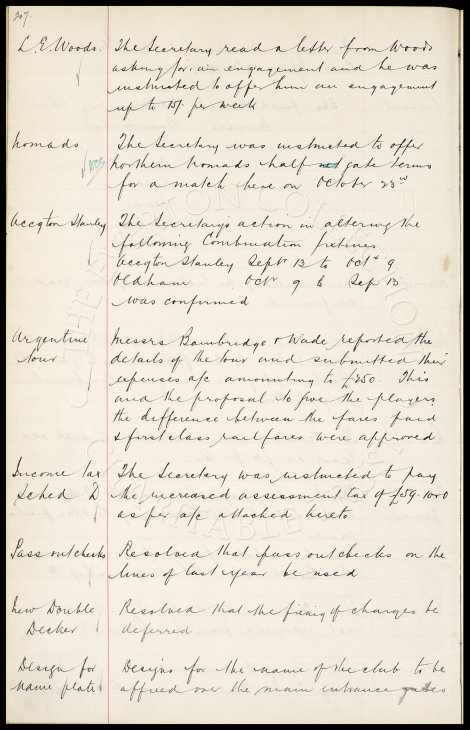 207.
L. E. Woods. The Secretary read a letter from Woods
asking for an engagement and he was
instructed to offer him an engagement
up to 15/- per week
Nomads The Secretary was instructed to offer
Northern Nomads half net gate terms
for a match here on October 23rd
Accgton Stanley The Secretary's action in altering the
following Combination fixtures
Accgton Stanley Sept 12 to Oct 9
Oldham Oct 9 to Sep 13
was confirmed
Argentine Messrs Bambridge & Wade reported the
Tour details of the tour and submitted their
expenses a/c amounting to £250. This
and the proposal to give the players
the difference between the fares paid
& first class rail fares were approved
Income tax The Secretary was instructed to pay
Sched D the increased assessment tax of £59-10-0
as per a/c attached hereto
Pass out checks Resolved that pass out checks on the
lines of last year be used
New Double Resolved that the fixing of charges be
Decker deferred
Design for Designs for the name of the club to be
name plate affixed over the main entrance gates